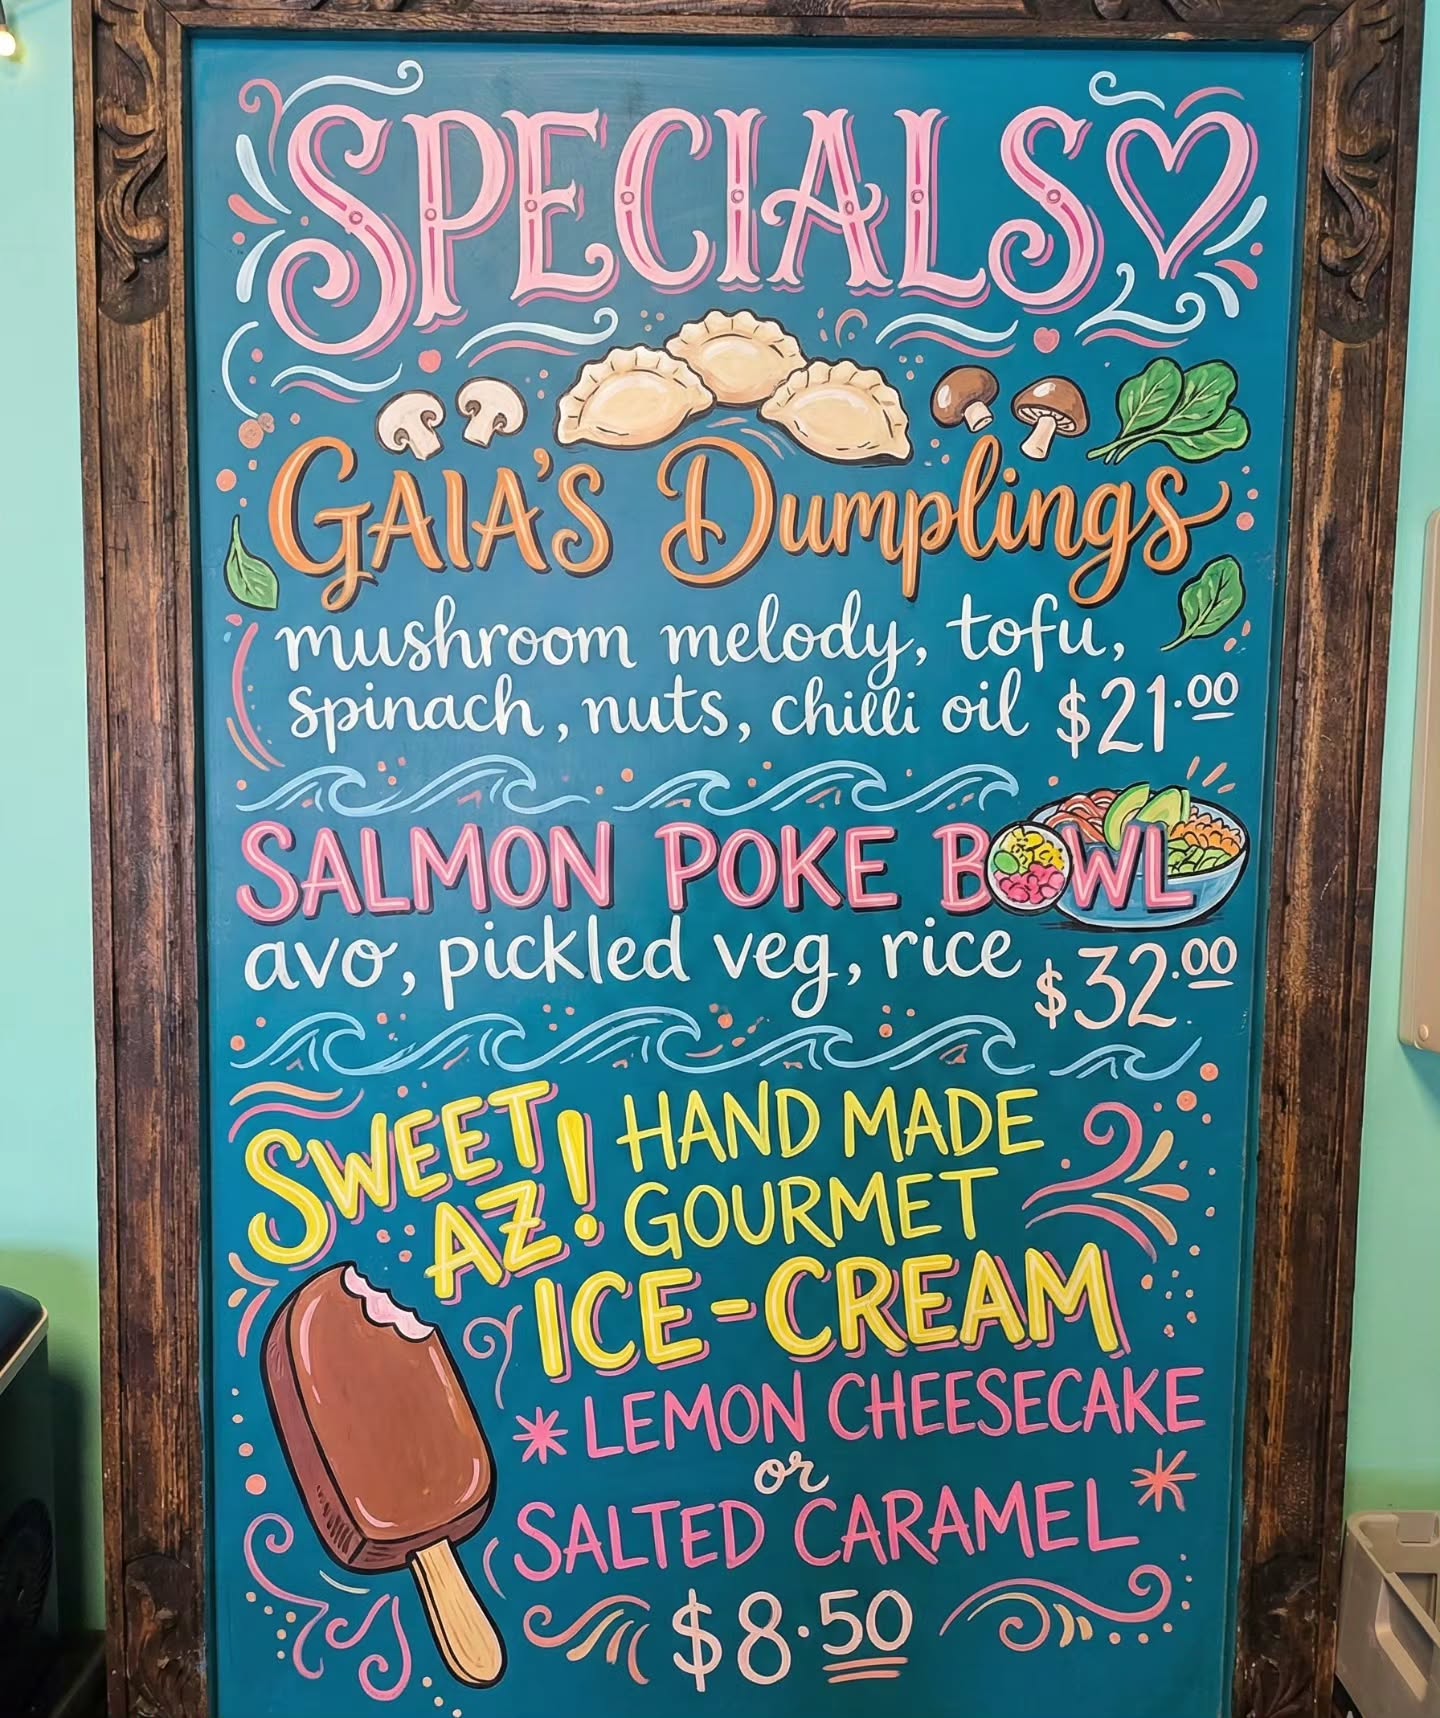 SPECIALS
GAIA'S Dumplings
mushroom melody, tofu,
spinach, nuts, chilli oil $21.00
SALMON POKE BOWL
avo, pickled veg, rice $32.00
SWEET AZ! HAND MADE
GOURMET
ICE-CREAM
* LEMON CHEESECAKE
or
SALTED CARAMEL *
$8.50